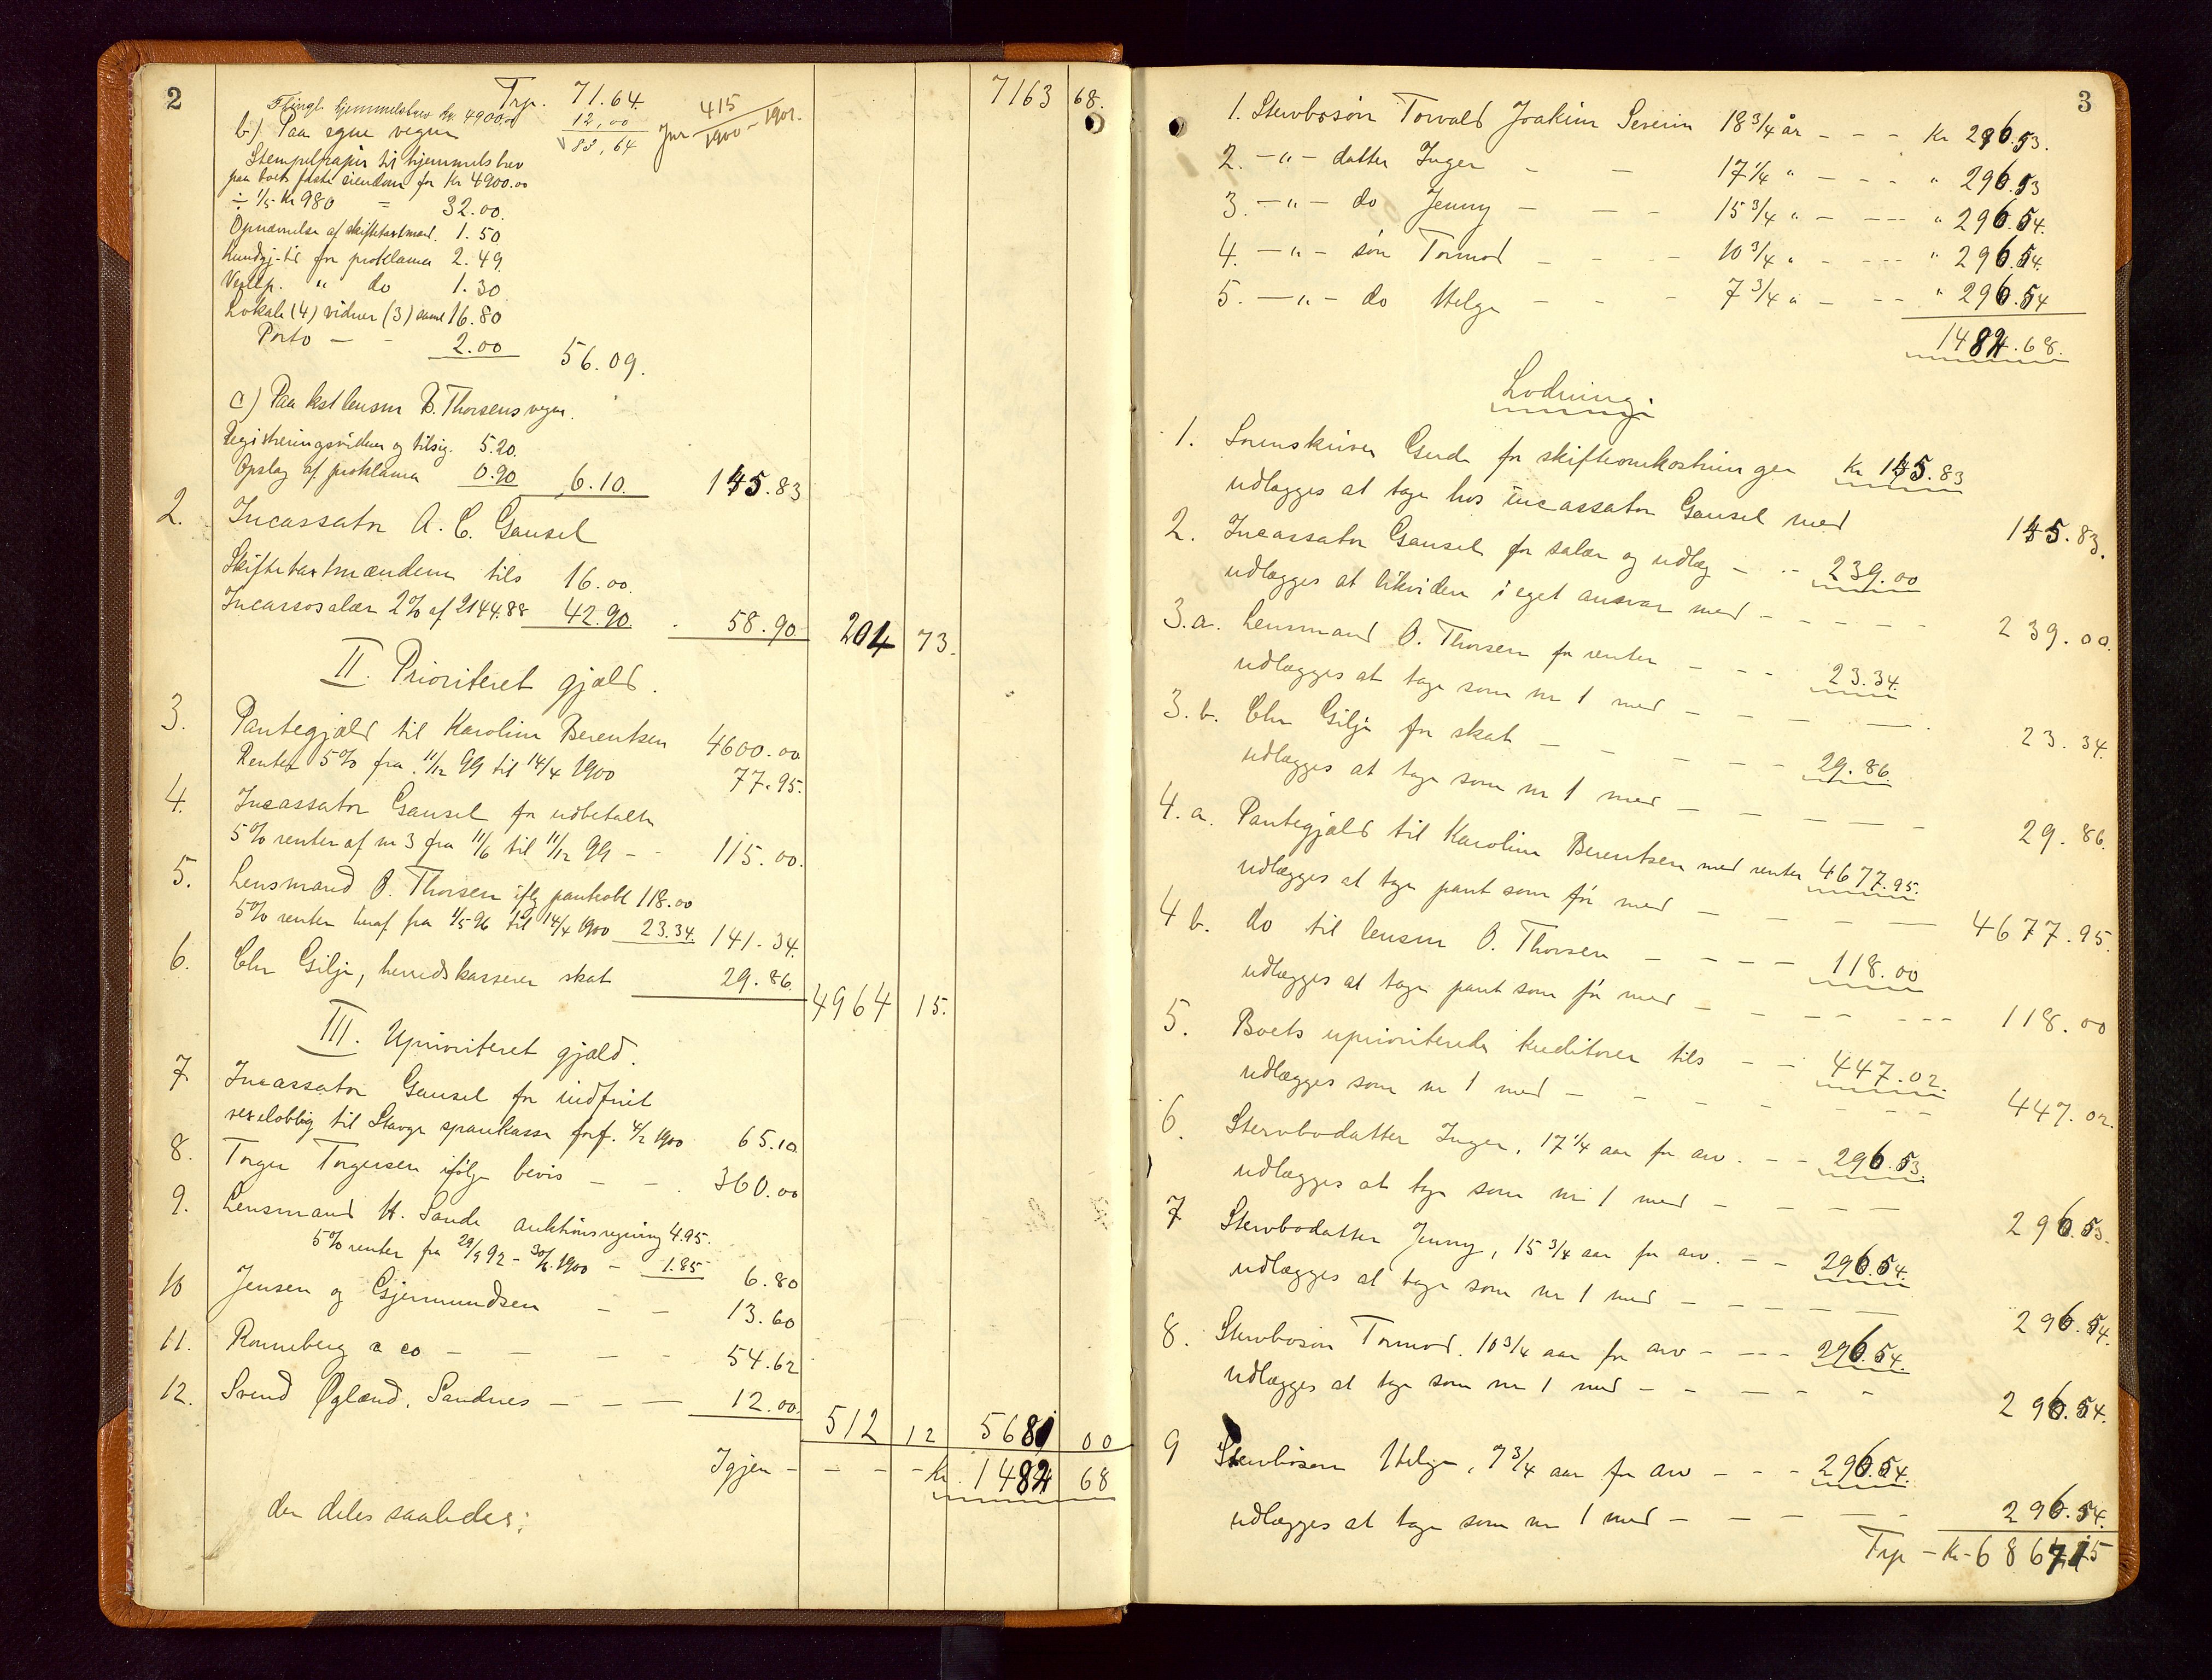 2
Trp. 71.64. 7163 68.
Tingl. hjemmelsbrev kr. 4900.00 12,00
83,64 Jnr 415/1900-1901.
b) Paa egne vegne
Stempelpapir til hjemmelsbrev
paa boets faste eiendom for Kr 4900.00
÷ 1/5 Kr 980 = 32.00.
Opnævnelse af skiftetaxtmænd. 1.50
Kundgj. tid for proklama 2.49
Vedlp. " do 1.30
Lokale (4) vidner (3) saml 16.80
Porto — - 2.00 56.09.
c) Paa kst lensm B. Thorsens vegne.
Registreringsvidner og tilsig. 5.20.
Opslag af proklama 0.90 6.10. 145.83
2. Incassator A. C. Gausel
Skiftetaxtmændene tils 16.00.
Incassosalær 2% af 2144.88 42.90 58.90 204 73.
II. Prioriteret gjæld.
3. Pantegjæld til Karoline Berentsen 4600.00
Renter 5% fra 11/12 99 til 14/4 1900 77.95.
4. Incassator Gausel for udbetalte
5% renter af nr 3 fra 11/6 til 11/12 99 - - 115.00.
5. Lensmand O. Thorsen iflg panteobl 118.00
5% renter heraf fra 1/5 96 til 14/4 1900 23.34. 141.34.
6. Chr Gilje, herredskasserer skat 29.86 4964 15.
III. Uprioriteret gjæld.
7 Incassator Gausel for indfriet
vexelobblig til Stavgr sparekasse forf. 4/2 1900 65.10
8. Torger Torgersen ifølge bevis — - 360.00
9. Lensmand H. Sande auktionsregning 4.95.
5% renter fra 29/9 92 - 30/6 1900 - 1.85 6.80
10 Jensen og Gjermundsen — - 13.60
11. Ronneberg & co - — - - 54.62
12. Svend Øgland, Sandnes - - — 12.00 512 12 5681 00
Igjen - - - - Kr. 1482 68
der deles saaledes:
3
1. Stervbosøn Torvald Joakim Severin 18 3/4 år - - - Kr 296.53.
2. -"- datter Inger - - 17 1/4 " - - - " 296.53
3. -"- do Jenny - - - 15 3/4 " - --- " 296.54.
4. -"- søn Tormod - - - 10 3/4 " - --- " 296.54.
5. -"- do Helge - - - 7 3/4 " - -- " 296.54
1482.68.
Lodning:
1. Sorenskriver Gude for skifteomkostninger Kr 145.83
udlægges at tage hos incassator Gausel med 145.83.
2. Incassator Gausel for salær og udlæg - -- 239.00
udlægges at likvidere i eget ansvar med - - - - - 239.00.
3.a. Lensmand O. Thorsen for renter - - - 23.34.
udlægges at tage som nr 1 med - - - - - 23.34.
3.b. Chr Gilje for skat - - - - - 29.86.
udlægges at tage som nr 1 med - - - - - 29.86.
4.a. Pantegjæld til Karoline Berentsen med renter 4677.95.
udlægges at tage pant som før med - - - - 4677.95.
4 b. do til lensm O. Thorsen - - - - 118.00
udlægges at tage pant som før med - - - - --- 118.00
5. Boets uprioriterede kreditorer tils - - 447.02.
udlægges som nr 1 med - - - - - - - 447.02.
6. Stervbodatter Inger, 17 1/4 aar for arv. - - 296.53.
udlægges at tage som nr 1 med - - - - 296.53.
7 Stervbodatter Jenny, 15 3/4 aar for arv. - - 296.54.
udlægges at tage som nr 1 med - - - - - 296.54.
8. Stervbosøn Tormod. 10 3/4 aar for arv - --- 296.54.
udlægges at tage som nr 1 med - - - - - 296.54.
9 Stervbosøn Helge, 7 3/4 aar for arv - - - 296.54.
udlægges at tage som nr 1 med - - - - - 296.54.
Trp - Kr - 6867.15